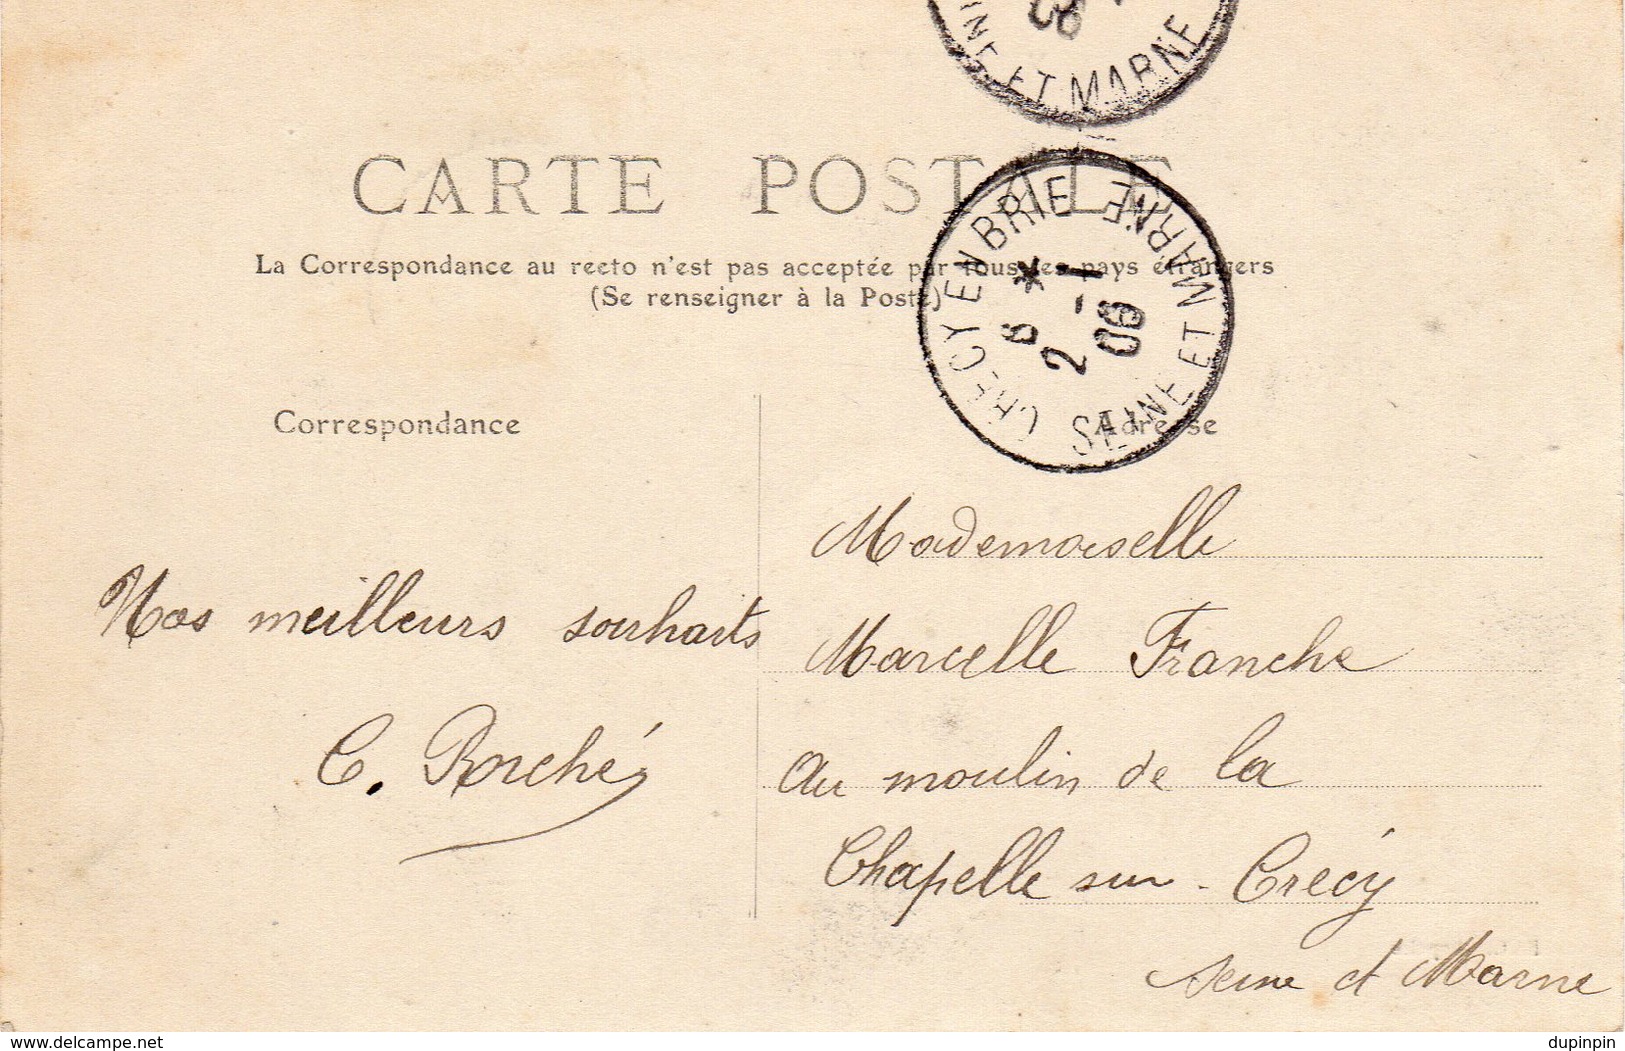 INE ET MARNE
CARTE POSTALE
La Correspondance au recto n'est pas acceptée par tous les pays étrangers
(Se renseigner à la Poste)
CRECY EN BRIE
8 *
2 - 1
09
SEINE ET MARNE
Correspondance
Adresse
Nos meilleurs souhaits
C. Roché
Mademoiselle
Marcelle Franche
au moulin de la
Chapelle sur - Crécy
Seine et Marne
www.delcampe.net
dupinpin